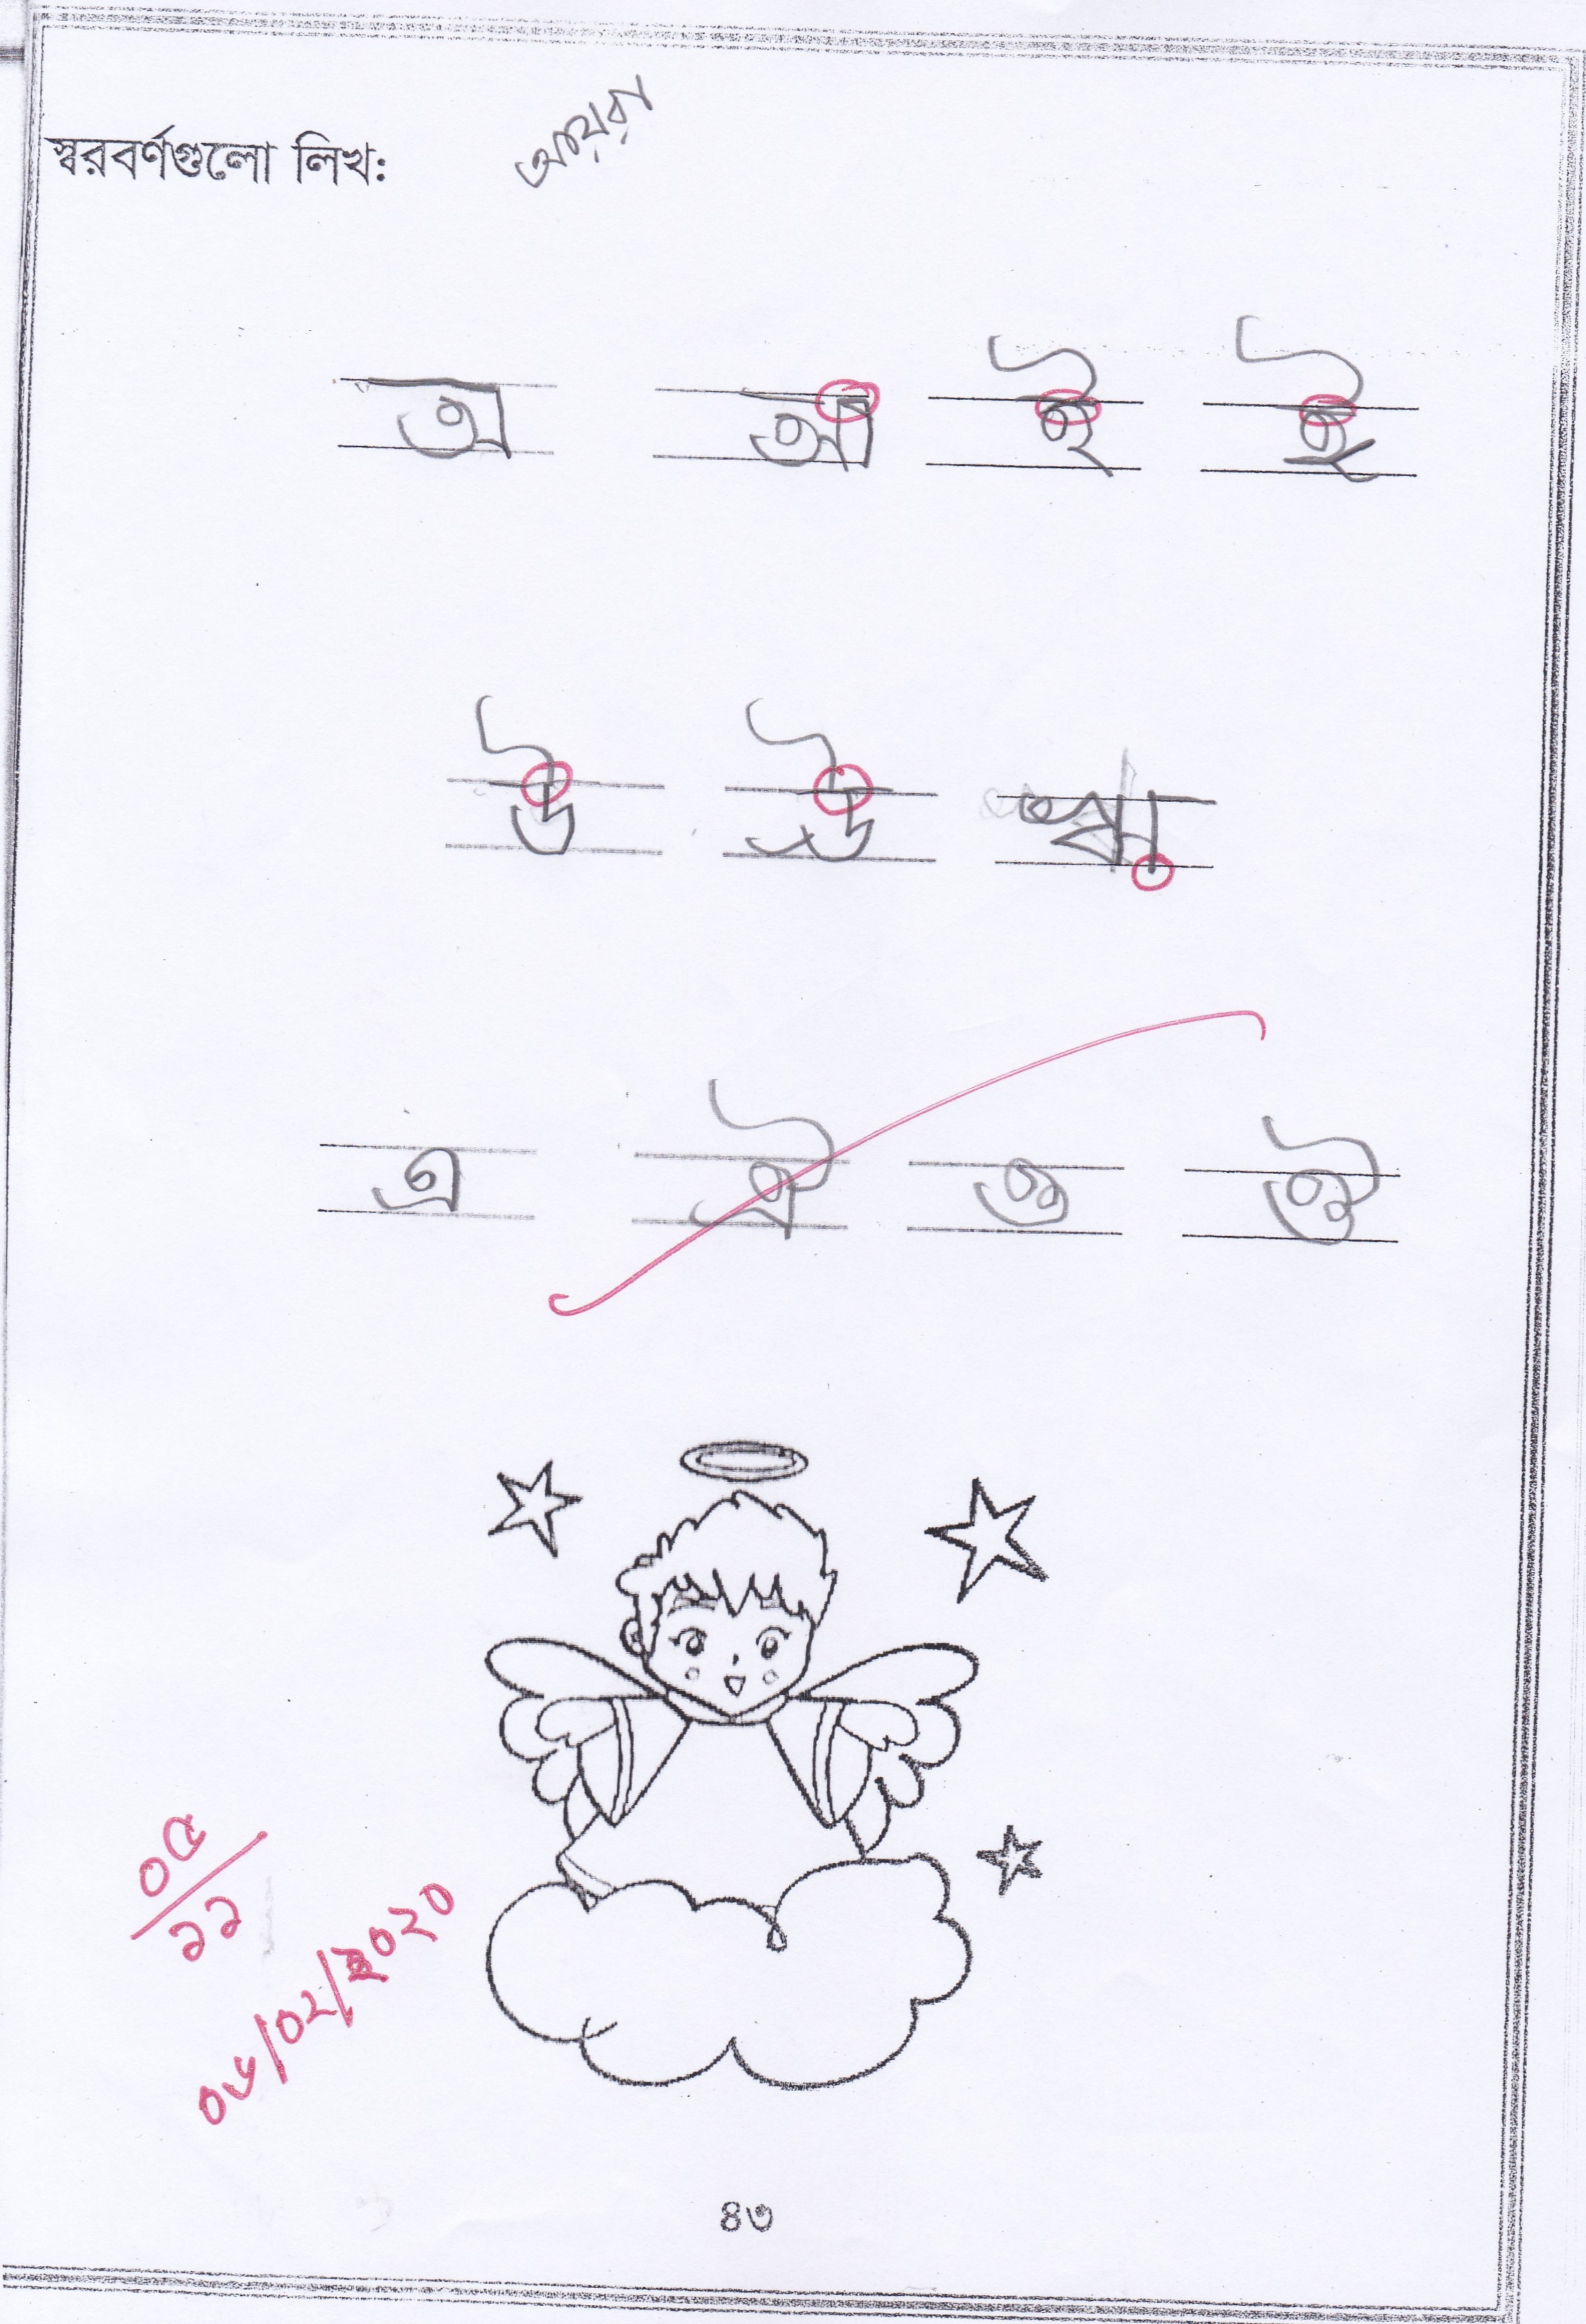 স্বরবর্ণগুলো লিখঃ
আয়রা
অ আ ই ঈ
উ ঊ ঋ
এ ঐ ও ঔ
০৫
১১
০৬/০২/২০২০
৪৩